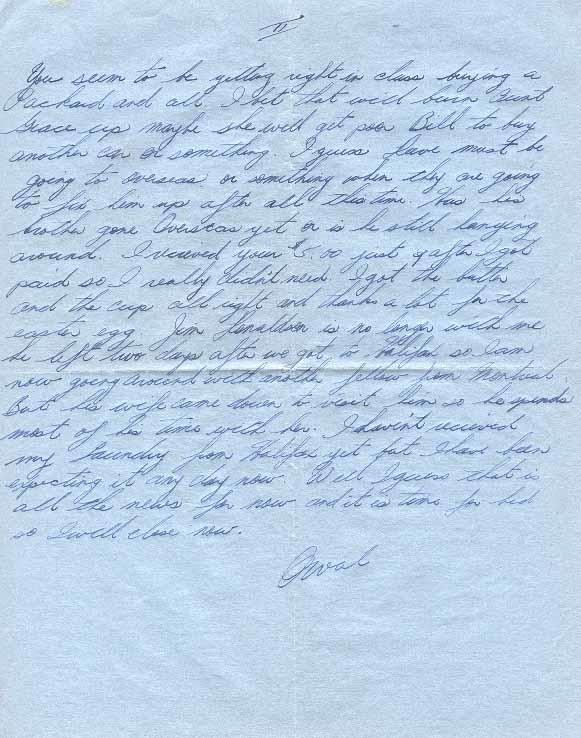 II
You seem to be getting right in class buying a
Packard and all. I bet that will burn Aunt
Grace up maybe she will get poor Bill to buy
another car or something. I guess Dave must be
going to overseas or something when they are going
to fix him up after all this time. Has his
brother gone Overseas yet or is he still hanging
around. I recieved your $5.00 just after I got
paid so I really didn't need. I got the butter
and the cup all right and thanks a lot for the
easter egg. Jim Donaldson is no longer with me
he left two days after we got to Halifax so I am
now going around with another fellow from Montreal
But his wife came down to visit him so he spends
most of his time with her. I haven't recieved
my laundry from Halifax yet but I have been
expecting it any day now. Well I guess that is
all the news for now and it is time for bed
so I will close now.
Orval